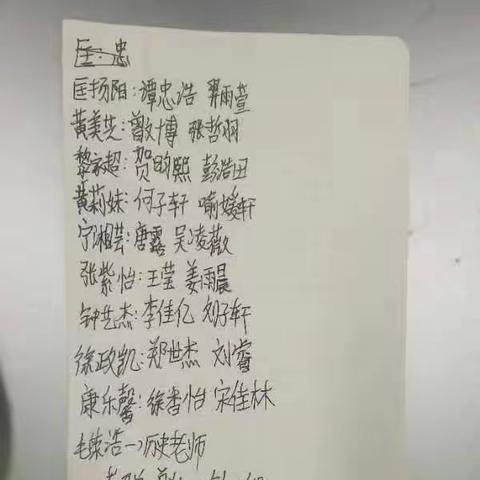 匡扬阳:谭忠浩 羿雨萱
黄美芸:曾敏博 张哲羽
黎家超:贺昀熙 彭浩田
黄莉妹:何子轩 喻媛轩
宁湘芸:唐露 吴凌薇
张紫怡:王莹 姜雨晨
钟艺杰:李佳亿 刘子轩
徐政凯:郑世杰 刘睿
康乐馨:徐香怡 宋佳林
毛荣浩→历史老师